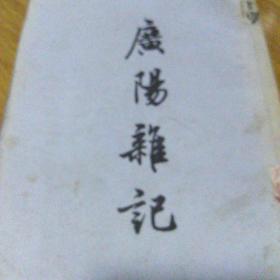 廣陽雜記